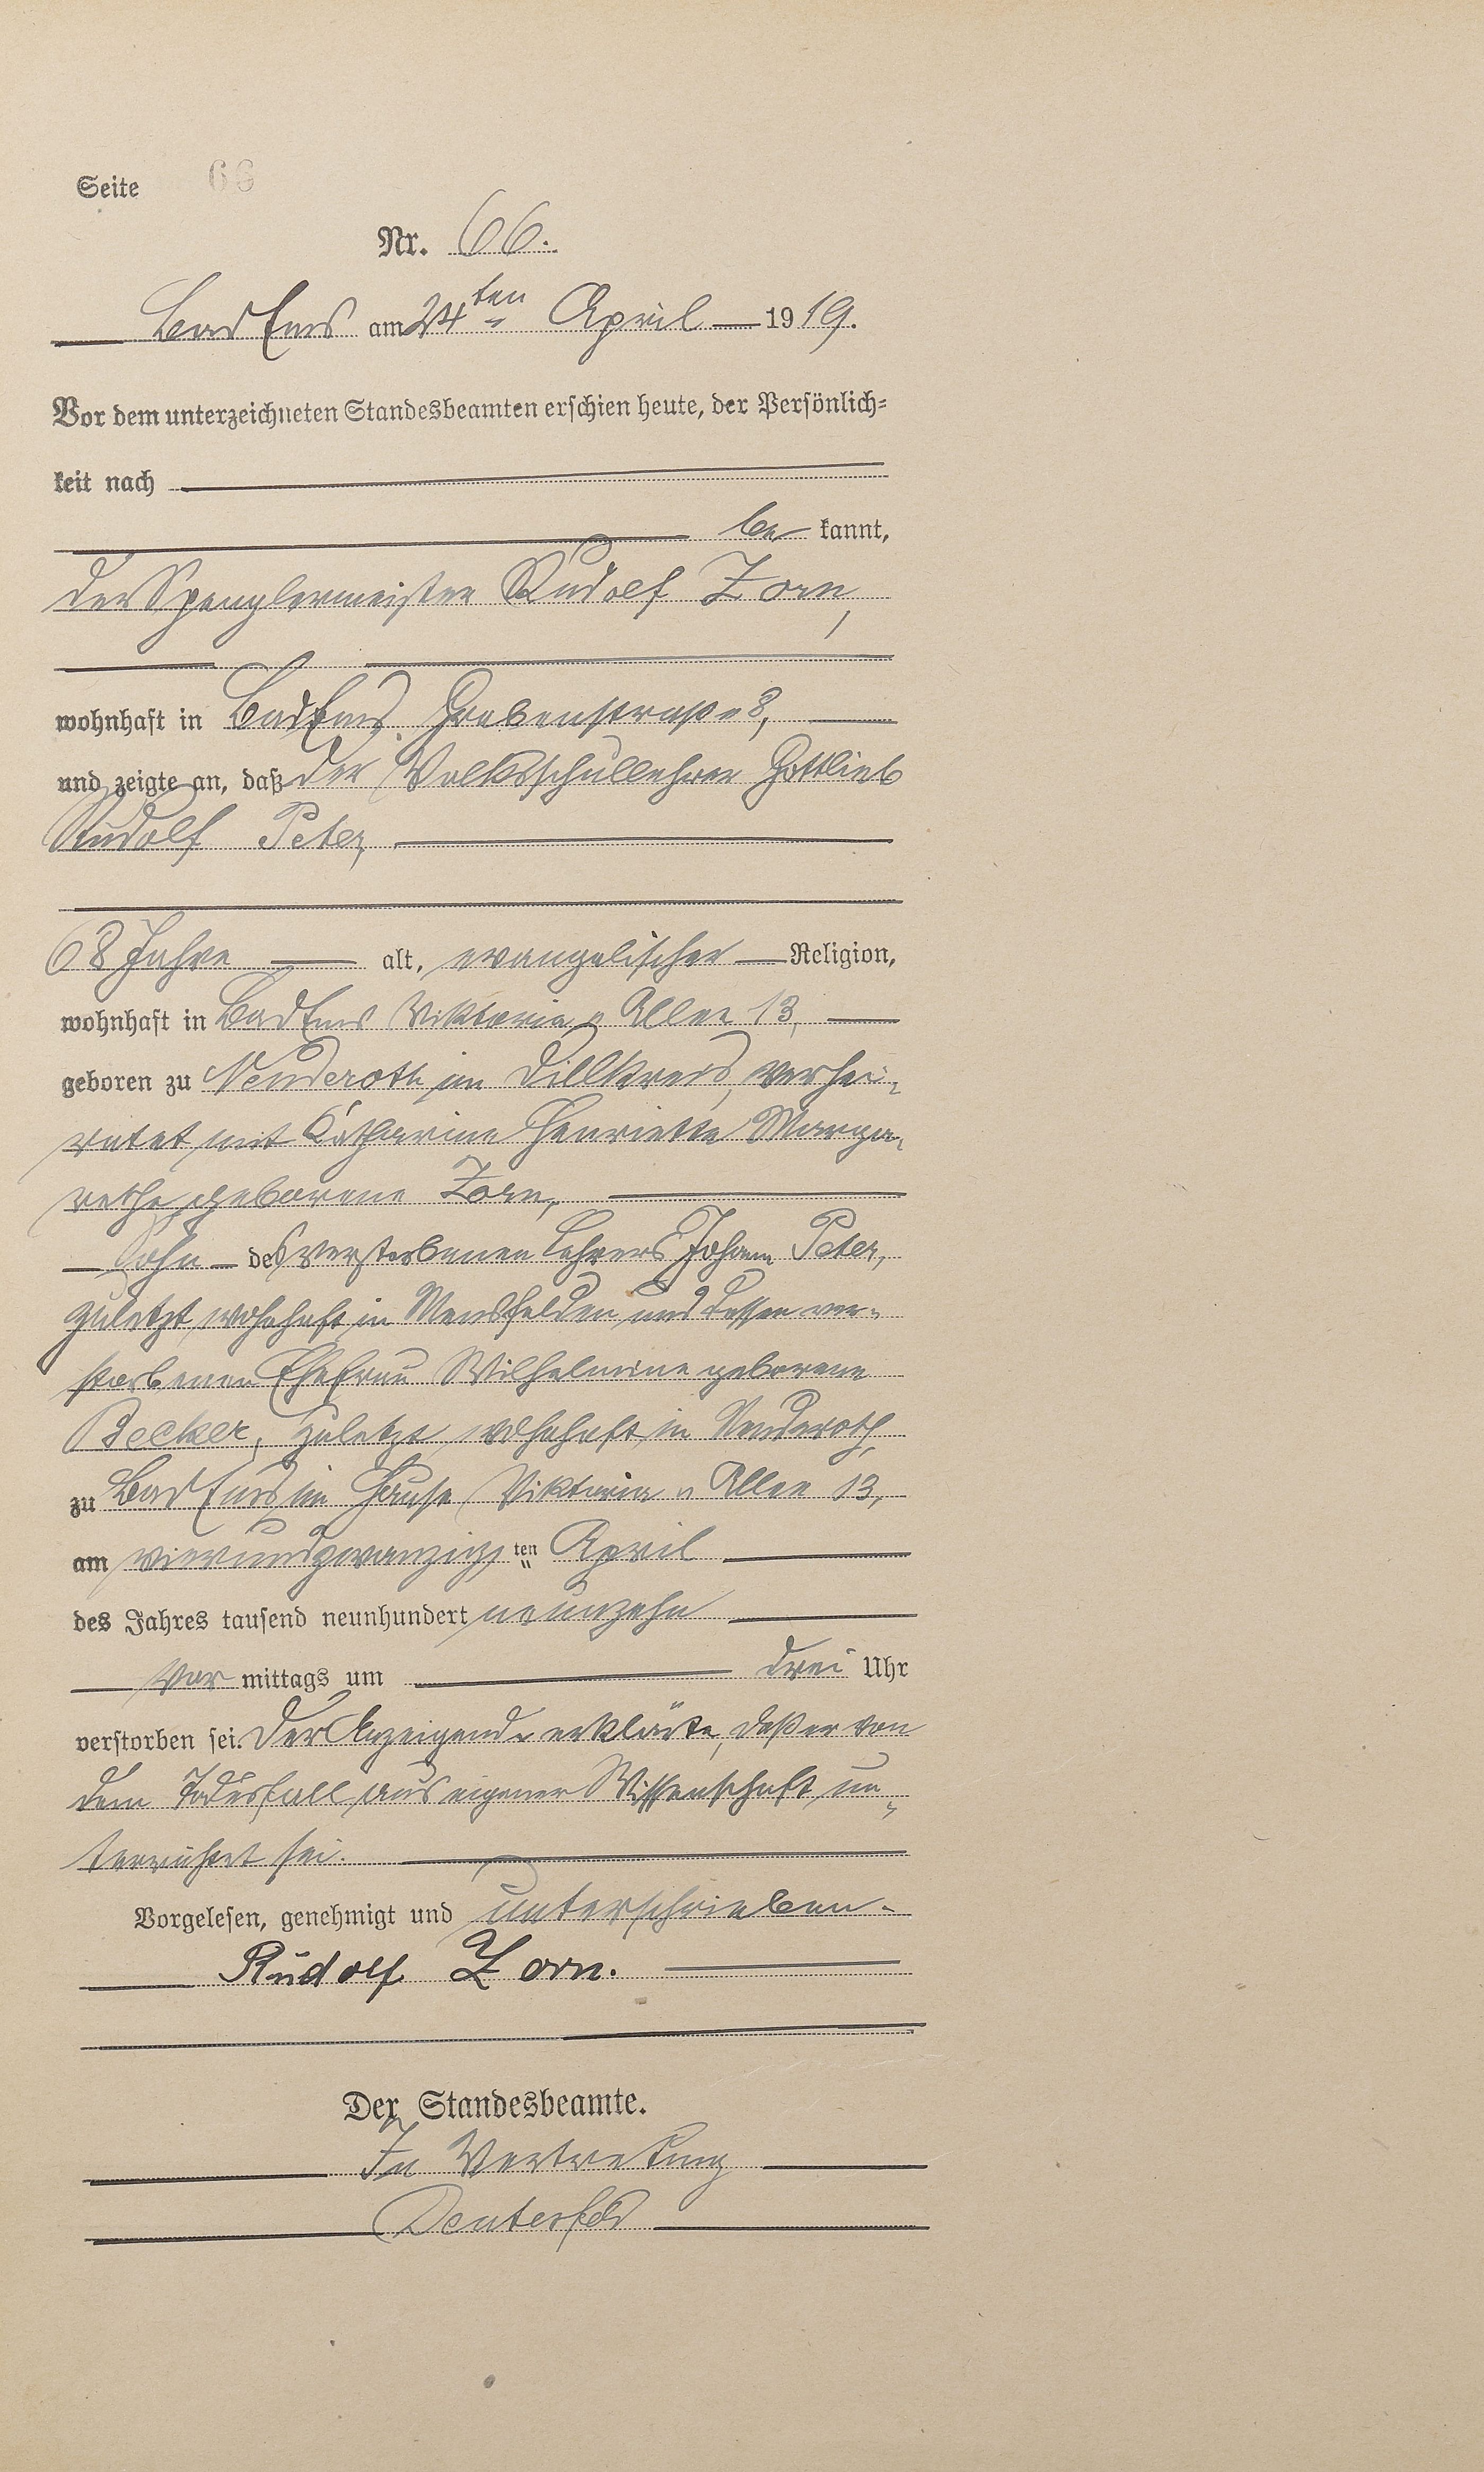 Seite 66
Nr. 66.
Bad Ems am 24ten April 1919.
Vor dem unterzeichneten Standesbeamten erschien heute, der Persönlich=
keit nach
be kannt,
der Spenglermeister Rudolf Zorn,
wohnhaft in Bad Ems, Grabenstraße 8,
und zeigte an, daß der Volksschullehrer Gottlieb
Rudolf Peter,
68 Jahre alt, evangelischer Religion,
wohnhaft in Bad Ems Viktoria-Allee 13,
geboren zu Nenderoth im Dillkreis, verhei-
ratet mit Katharine Henriette Marga-
rethe geborene Zorn,
Sohn des verstorbenen Lehrers Johann Peter,
zuletzt wohnhaft in Mensfelden und dessen ver-
storbenen Ehefrau Wilhelmine geborene
Becker, zuletzt wohnhaft in Nenderoth,
zu Bad Ems im Hause Viktoria-Allee 13,
am vierundzwanzig ten April
des Jahres tausend neunhundert neunzehn
Vor mittags um drei Uhr
verstorben sei. Der Anzeigende erklärte, daß er von
dem Todesfall aus eigener Wissenschaft un-
terrichtet sei.
Vorgelesen, genehmigt und unterschrieben.
Rudolf Zorn.
Der Standesbeamte.
In Vertretung